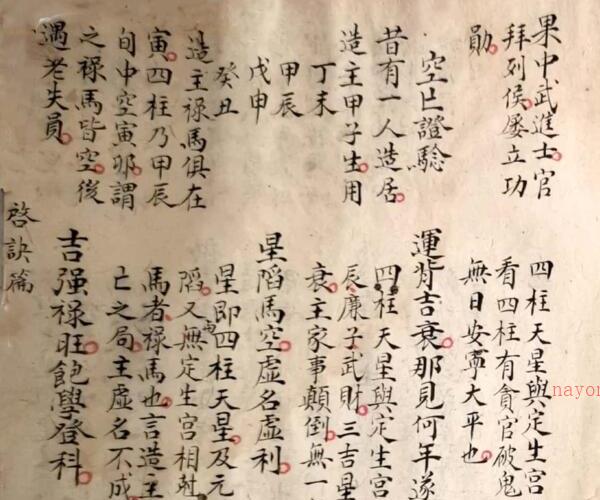 果中武進士官
拜列侯屡立功
勛
空亡證驗
昔有一人造居
造主甲子生用
丁未
甲辰
戊申
癸丑
造主禄馬俱在
寅四柱乃甲辰
旬中空寅卯謂
之禄馬皆空後
遇老失員
四柱天星與定生宫
看四柱有貪官破鬼
無日安寧大平也
運背吉衰那見何年遂
四柱天星與定生宫
辰廉子武財三吉星
衰主家事顛倒無一
星謟馬空虚名虚利
星即四柱天星及元
謟又無定生宫相對
馬者禄馬也言造主
亡之局主虚名不成
吉强禄旺飽學登科
啓訣篇
nayon